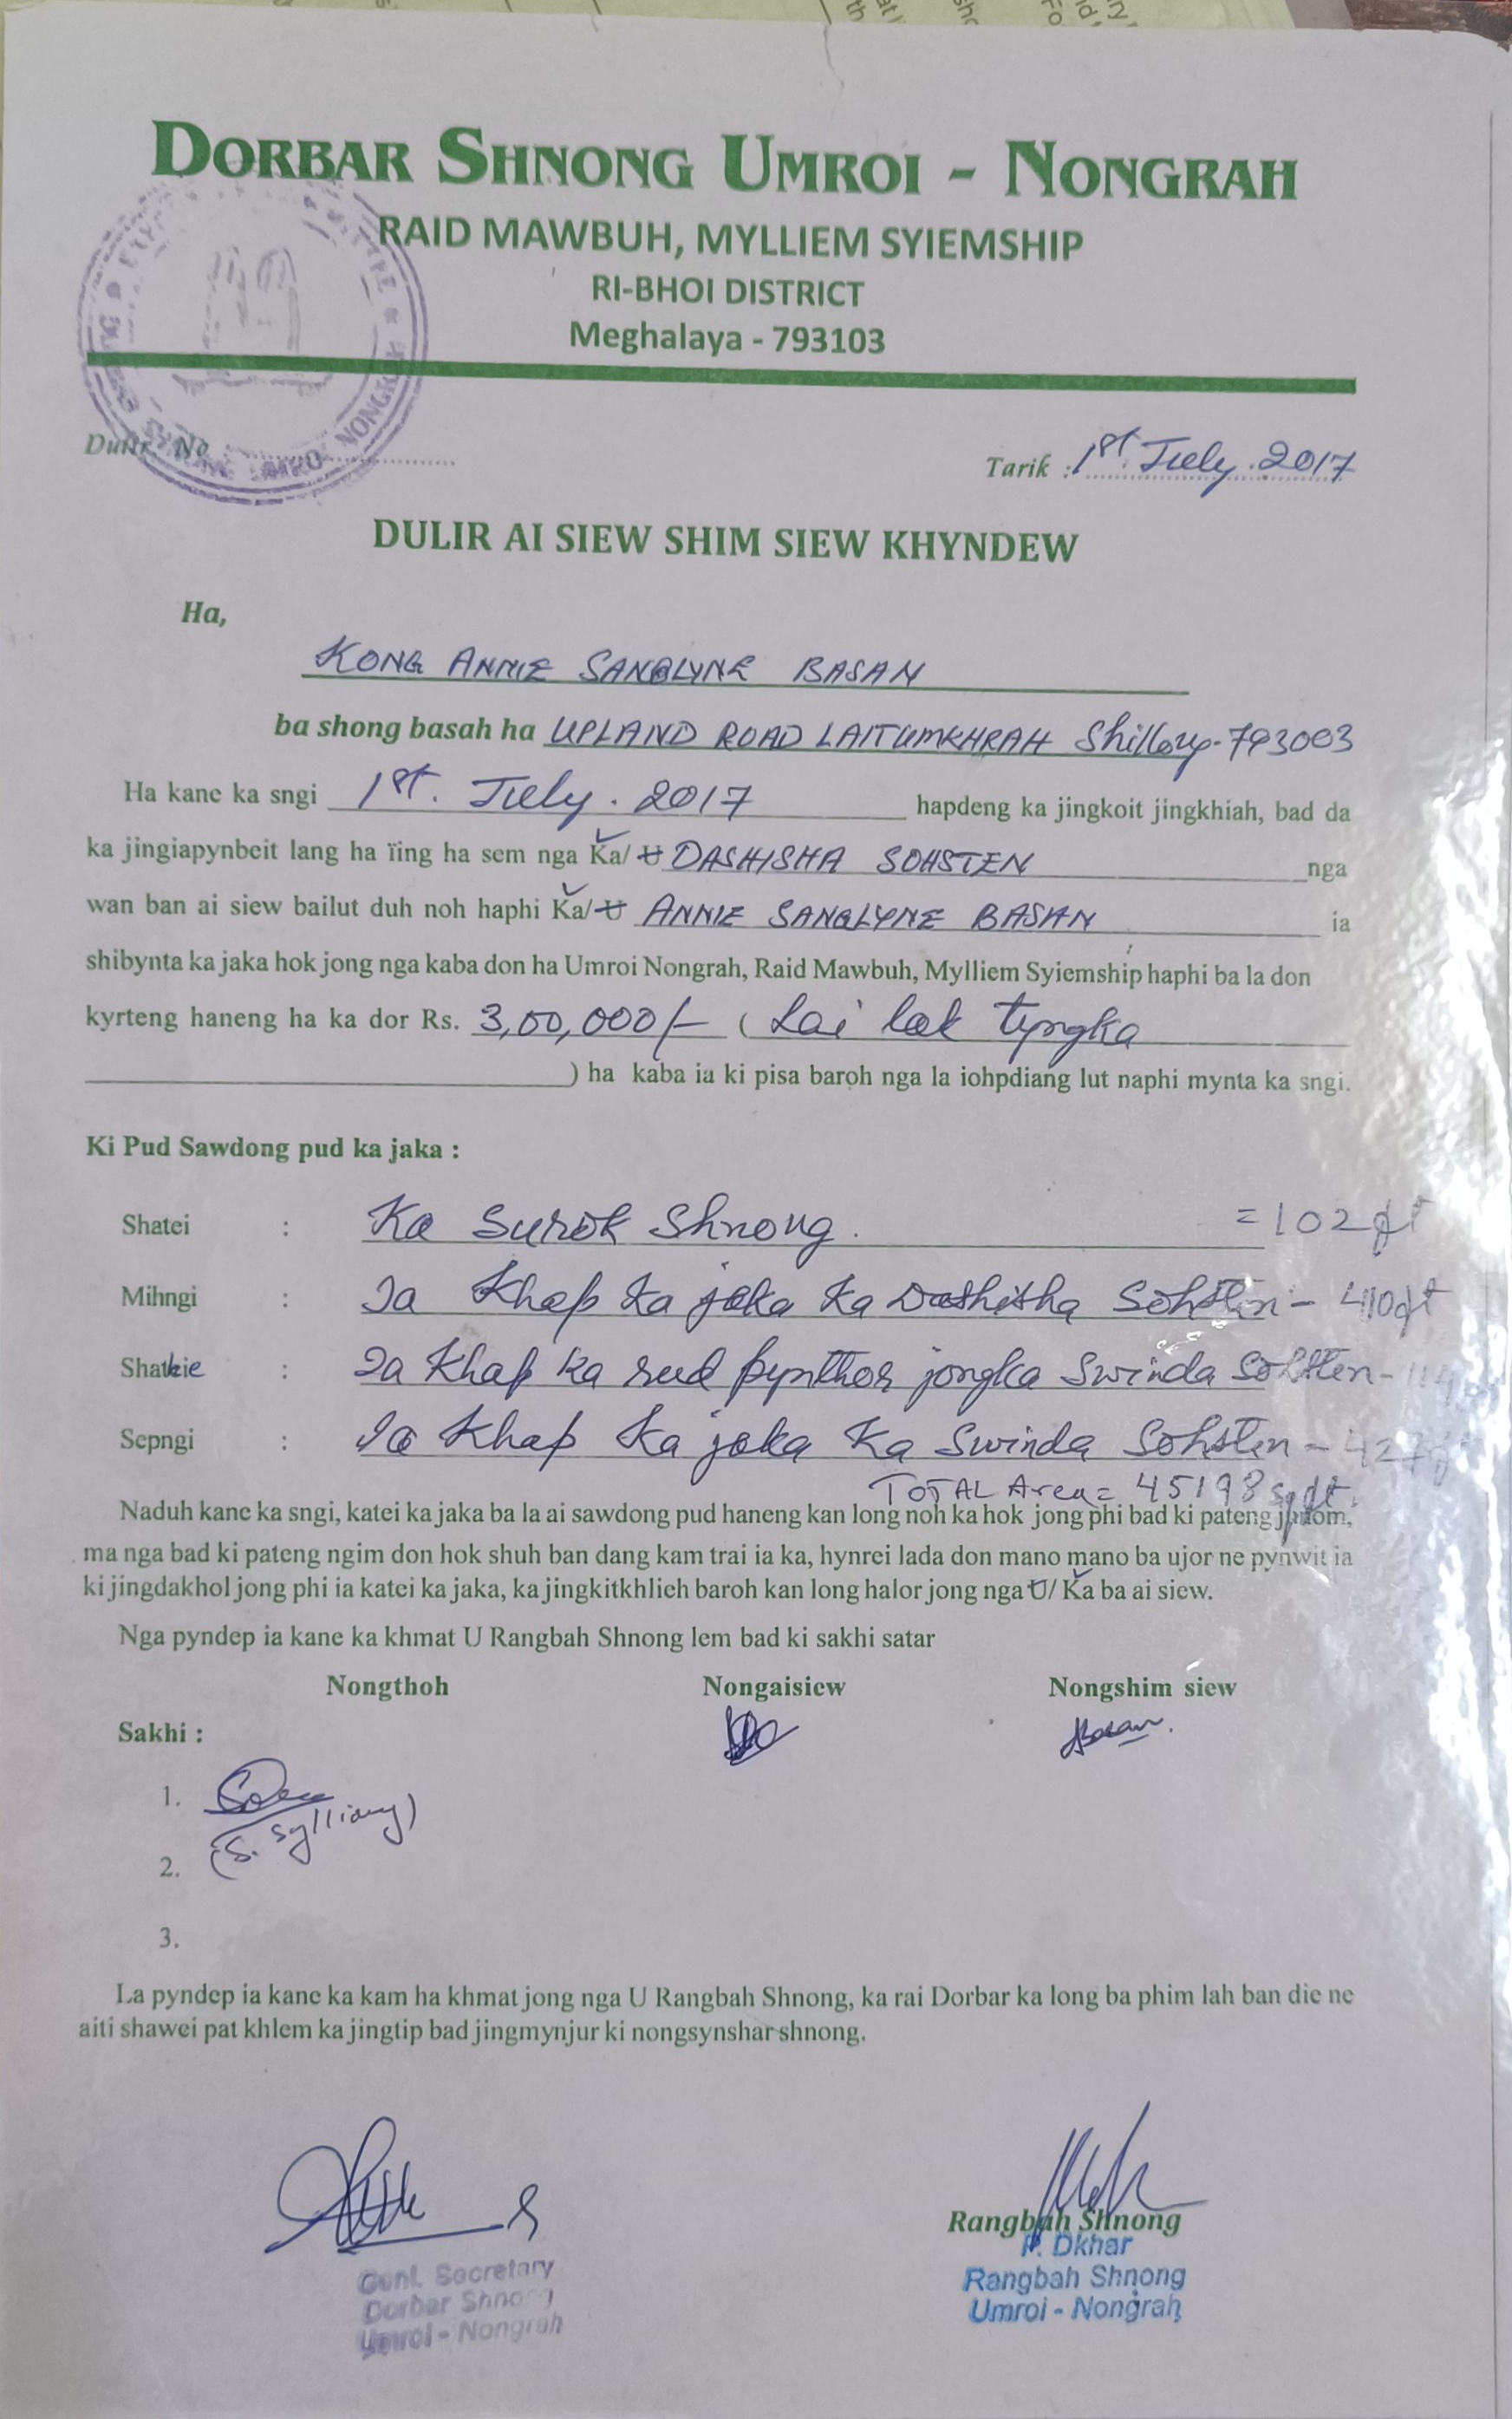 DORBAR SHNONG UMROI - NONGRAH
RAID MAWBUH, MYLLIEM SYIEMSHIP
RI-BHOI DISTRICT
Meghalaya - 793103
Dulir No
Tarik : 1st July. 2017
DULIR AI SIEW SHIM SIEW KHYNDEW
Ha,
KONG ANNIE SANGLYNE BASAN
ba shong basah ha UPLAND ROAD LAITUMKHRAH Shillong-793003
Ha kane ka sngi 1st. July. 2017 hapdeng ka jingkoit jingkhiah, bad da
ka jingiapynbeit lang ha ïing ha sem nga Ka/ U DASHISHA SOHSTEN nga
wan ban ai siew bailut duh noh haphi Ka/ U ANNIE SANGLYNE BASAN ia
shibynta ka jaka hok jong nga kaba don ha Umroi Nongrah, Raid Mawbuh, Mylliem Syiemship haphi ba la don
kyrteng haneng ha ka dor Rs. 3,00,000/- ( Lai lak tyngka
) ha kaba ia ki pisa baroh nga la iohpdiang lut naphi mynta ka sngi.
Ki Pud Sawdong pud ka jaka :
Shatei : Ka Surok Shnong. = 102 ft
Mihngi : Ia Khap ka jaka Ka Dashisha Sohsten - 410 ft
Shathie : Ia Khap ka rud pynthor jongka Swinda Sohsten -
Sepngi : Ia Khap Ka jaka Ka Swinda Sohsten - 427
TOTAL Area = 45198 sq ft.
Naduh kane ka sngi, katei ka jaka ba la ai sawdong pud haneng kan long noh ka hok jong phi bad ki pateng jpnom,
ma nga bad ki pateng ngim don hok shuh ban dang kam trai ia ka, hynrei lada don mano mano ba ujor ne pynwit ia
ki jingdakhol jong phi ia katei ka jaka, ka jingkitkhlieh baroh kan long halor jong nga U/ Ka ba ai siew.
Nga pyndep ia kane ka khmat U Rangbah Shnong lem bad ki sakhi satar
Nongthoh Nongaisiew Nongshim siew
Sakhi :
1.
(S. Sylliang)
2.
3.
La pyndep ia kane ka kam ha khmat jong nga U Rangbah Shnong, ka rai Dorbar ka long ba phim lah ban die ne
aiti shawei pat khlem ka jingtip bad jingmynjur ki nongsynshar shnong.
Rangbah Shnong
P. Dkhar
Rangbah Shnong
Umroi - Nongrah
Genl. Secretary
Dorbar Shnong
Umroi - Nongrah